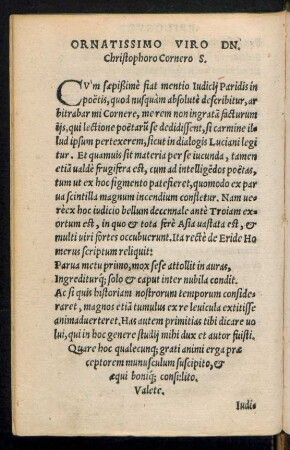 ORNATISSIMO VIRO DN.
Christophoro Cornero S.
CVm sæpißimè fiat mentio Iudicij Paridis in
poëtis, quod nusquàm absolutè describitur, ar
bitrabar mi Cornere, me rem non ingratã facturum
ijs, qui lectione poëtarũ se dedidissent, si carmine il-
lud ipsum pertexerem, sicut in dialogis Luciani legi
tur. Et quamuis sit materia per se iucunda, tamen
etiã valdè frugifera est, cum ad intelligẽdos poëtas,
tum ut ex hoc figmento patefieret, quomodo ex par
ua scintilla magnum incendium consletur. Nam ue-
rè ex hoc iudicio bellum decennale antè Troiam ex-
ortum est, in quo & tota ferè Asia vastata est, &
multi viri fortes occubuerunt. Ita rectè de Eride Ho
merus scriptum reliquit:
Parua metu primo, mox sese attollit in auras,
Ingrediturq; solo & caput inter nubila condit.
Ac si quis historiam nostrorum temporum conside-
raret, magnos etiã tumulus ex re leuicula extitisse
animaduerteret. Has autem primitias tibi dicare uo
lui, qui in hoc genere studij mihi dux et autor fuisti.
Quare hoc qualecunq; grati animi erga præ
ceptorem munusculum suscipito, &
æqui boniq; consulito.
Valete.
Iudi-